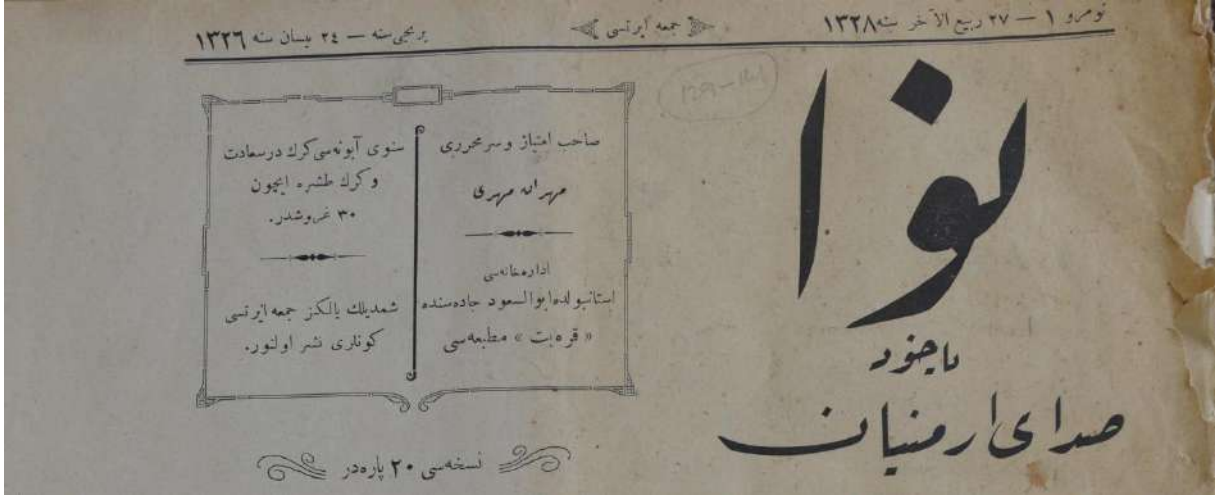 نومرو ١ — ٢٧ ربيع الآخر سنه ١٣٢٨
جمعه ایرتسی
برنجی سنه — ٢٤ نیسان سنه ١٣٢٦
نوا
یاخود
صدای ارمنیان
صاحب امتیاز وسر محرری
مهران مهری
اداره‌خانه‌سی
استانبولده ابوالسعود جاده‌سنده
« قره‌بت » مطبعه‌سی
سنوی آبونه‌سی كرك درسعادت
وكرك طشره ایچون
٣٠ غروشدر.
شمدیلك یالكز جمعه ایرتسی
كونلری نشر اولنور.
نسخه‌سی ٢٠ پاره‌در